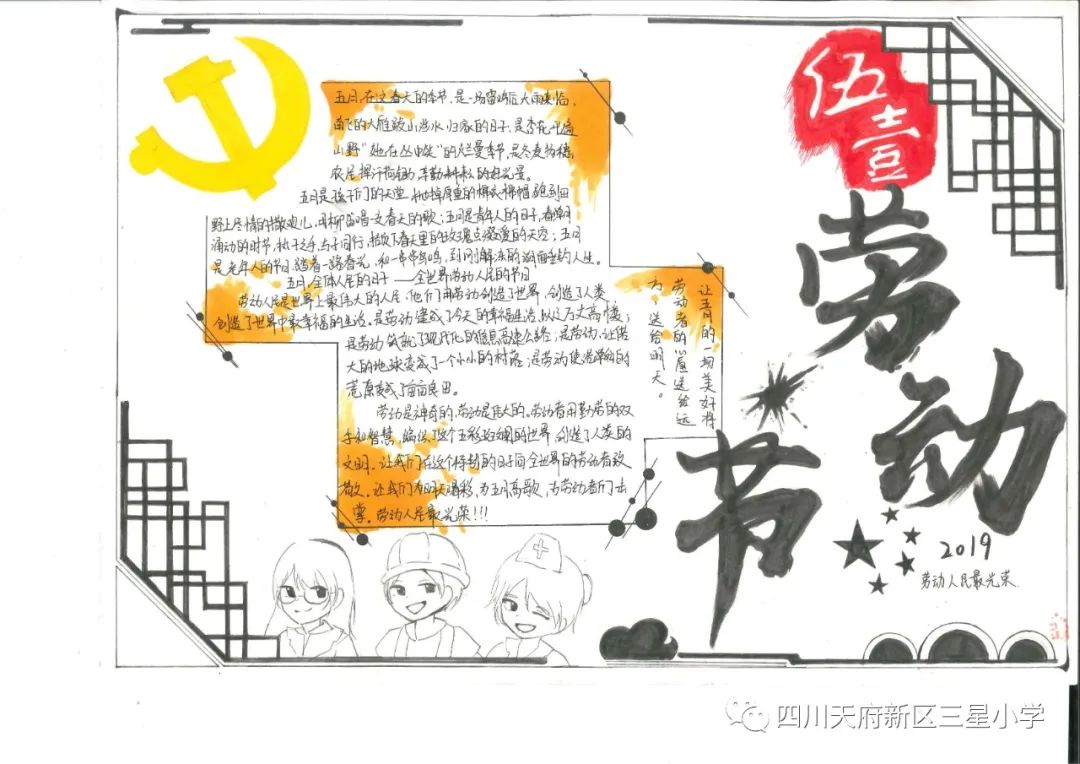 五月,在这春天的季节,是一场雷鸣后大雨来临,
南飞的大雁跋山涉水归家的日子,是杏花开遍
山野"她在丛中笑"的烂漫季节,是冬麦扬穗,
农民挥汗荷锄,辛勤耕耘的好光景。
五月是孩子们的天堂,抛掉厚重的棉衣棉帽跑到田
野上尽情的撒欢儿,用柳笛唱一支春天的歌;五月是青年人的日子,春潮
涌动的时节,执子之手,与子同行,摘下春天里的玫瑰点缀爱的天空;五月
是老年人的节日,踏着一路春光,和一串鸟鸣,到刚解冻的湖面垂钓人生。
五月,全体人民的日子——全世界劳动人民的节日
劳动人民是世界上最伟大的人民,他们用劳动创造了世界,创造了人类,
创造了世界中最幸福的生活。是劳动,建成了今天的幸福生活,以及万丈高楼;
是劳动,筑就了现代化的信息高速公路;是劳动,让偌
大的地球变成了一个小小的村落;是劳动使浩瀚的
荒原变成了亩亩良田。
劳动是神奇的,劳动是伟大的。劳动者用勤劳的双
手和智慧,编织了这个五彩斑斓的世界,创造了人类的
文明。让我们在这个特殊的日子向全世界的劳动者致
敬。让我们为明天喝彩,为五月高歌,为劳动者们击
掌。劳动人民最光荣!!!
让五月的一切美好将
劳动者的送给远
方,送给明天。
伍壹
劳动
节
2019
劳动人民最光荣
四川天府新区三星小学